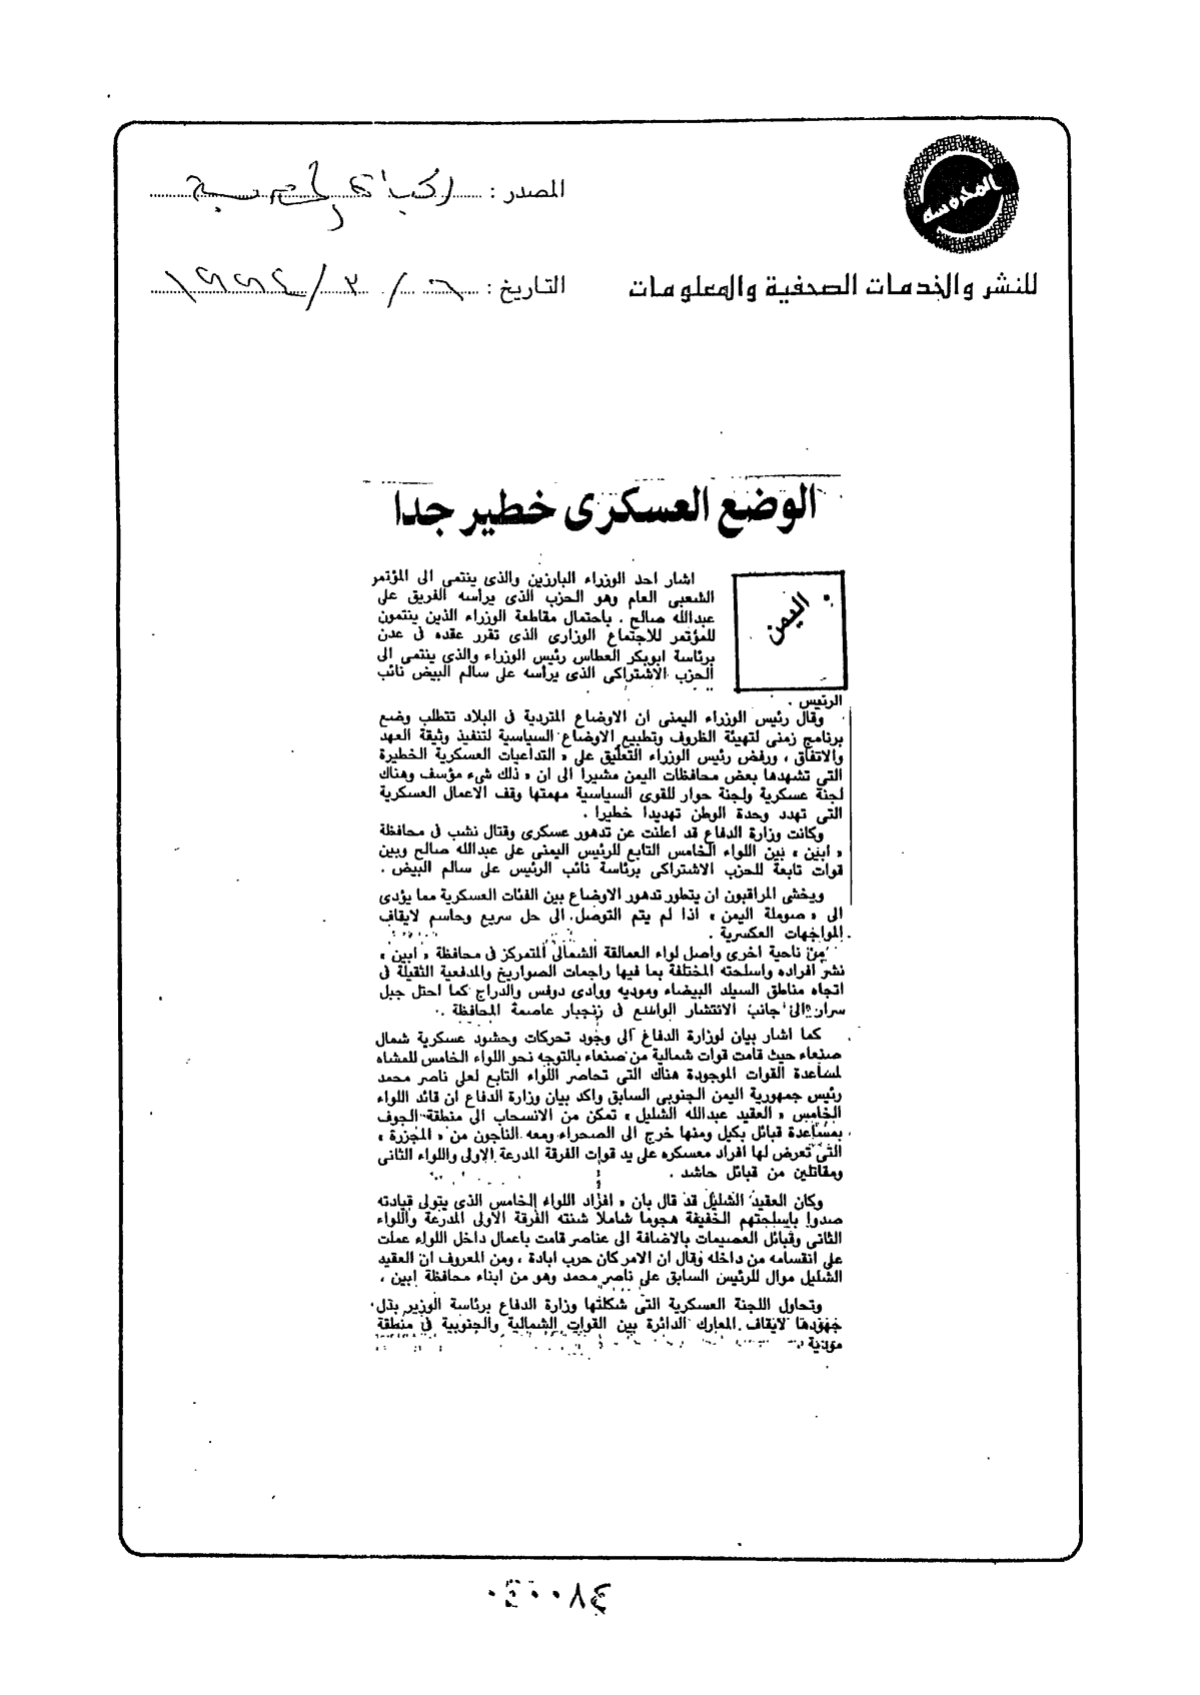 المحروسه
المصدر :
للنشر والخدمات الصحفية والمعلومات
التاريخ : ٦ / ٣ / ١٩٩٤
الوضع العسكرى خطير جدا
اليمن
اشار احد الوزراء البارزين والذى ينتمى الى المؤتمر
الشعبى العام وهو الحزب الذى يراسه الفريق على
عبدالله صالح . باحتمال مقاطعة الوزراء الذين ينتمون
للمؤتمر للاجتماع الوزارى الذى تقرر عقده فى عدن
برئاسة ابوبكر العطاس رئيس الوزراء والذى ينتمى الى
الحزب الاشتراكى الذى يراسه على سالم البيض نائب
الرئيس .
وقال رئيس الوزراء اليمنى ان الاوضاع المتردية فى البلاد تتطلب وضع
برنامج زمنى لتهيئة الظروف وتطبيع الاوضاع السياسية لتنفيذ وثيقة العهد
والاتفاق ، ورفض رئيس الوزراء التعليق على « التداعيات العسكرية الخطيرة
التى تشهدها بعض محافظات اليمن مشيرا الى ان « ذلك شىء مؤسف وهناك
لجنة عسكرية ولجنة حوار للقوى السياسية مهمتها وقف الاعمال العسكرية
التى تهدد وحدة الوطن تهديدا خطيرا .
وكانت وزارة الدفاع قد اعلنت عن تدهور عسكرى وقتال نشب فى محافظة
« ابين » بين اللواء الخامس التابع للرئيس اليمنى على عبدالله صالح وبين
قوات تابعة للحزب الاشتراكى برئاسة نائب الرئيس على سالم البيض .
ويخشى المراقبون ان يتطور تدهور الاوضاع بين الفئات العسكرية مما يؤدى
الى « صوملة اليمن » اذا لم يتم التوصل الى حل سريع وحاسم لايقاف
المواجهات العكسرية .
من ناحية اخرى واصل لواء العمالقة الشمالى المتمركز فى محافظة « ابين »
نشر افراده واسلحته المختلفة بما فيها راجمات الصواريخ والمدفعية الثقيلة فى
اتجاه مناطق السيلد البيضاء وموديه ووادى دوفس والدراج كما احتل جبل
سرار الى جانب الانتشار الواسع فى زنجبار عاصمة المحافظة .
كما اشار بيان لوزارة الدفاع الى وجود تحركات وحشود عسكرية شمال
صنعاء حيث قامت قوات شمالية من صنعاء بالتوجه نحو اللواء الخامس للمشاه
لمساعدة القوات الموجودة هناك التى تحاصر اللواء التابع لعلى ناصر محمد
رئيس جمهورية اليمن الجنوبى السابق واكد بيان وزارة الدفاع ان قائد اللواء
الخامس « العقيد عبدالله الشليل » تمكن من الانسحاب الى منطقة الجوف
بمساعدة قبائل بكيل ومنها خرج الى الصحراء ومعه الناجون من « المجزرة »
التى تعرض لها افراد معسكره على يد قوات الفرقة المدرعة الاولى واللواء الثانى
ومقاتلين من قبائل حاشد .
وكان العقيد الشليل قد قال بان « افراد اللواء الخامس الذى يتولى قيادته
صدوا باسلحتهم الخفيفة هجوما شاملا شنته الفرقة الاولى المدرعة واللواء
الثانى وقبائل العصيمات بالاضافة الى عناصر قامت باعمال داخل اللواء عملت
على انقسامه من داخله وقال ان الامر كان حرب ابادة ، ومن المعروف ان العقيد
الشليل موال للرئيس السابق على ناصر محمد وهو من ابناء محافظة ابين ،
وتحاول اللجنة العسكرية التى شكلتها وزارة الدفاع برئاسة الوزير بذل
جهودها لايقاف المعارك الدائرة بين القوات الشمالية والجنوبية فى منطقة
مودية